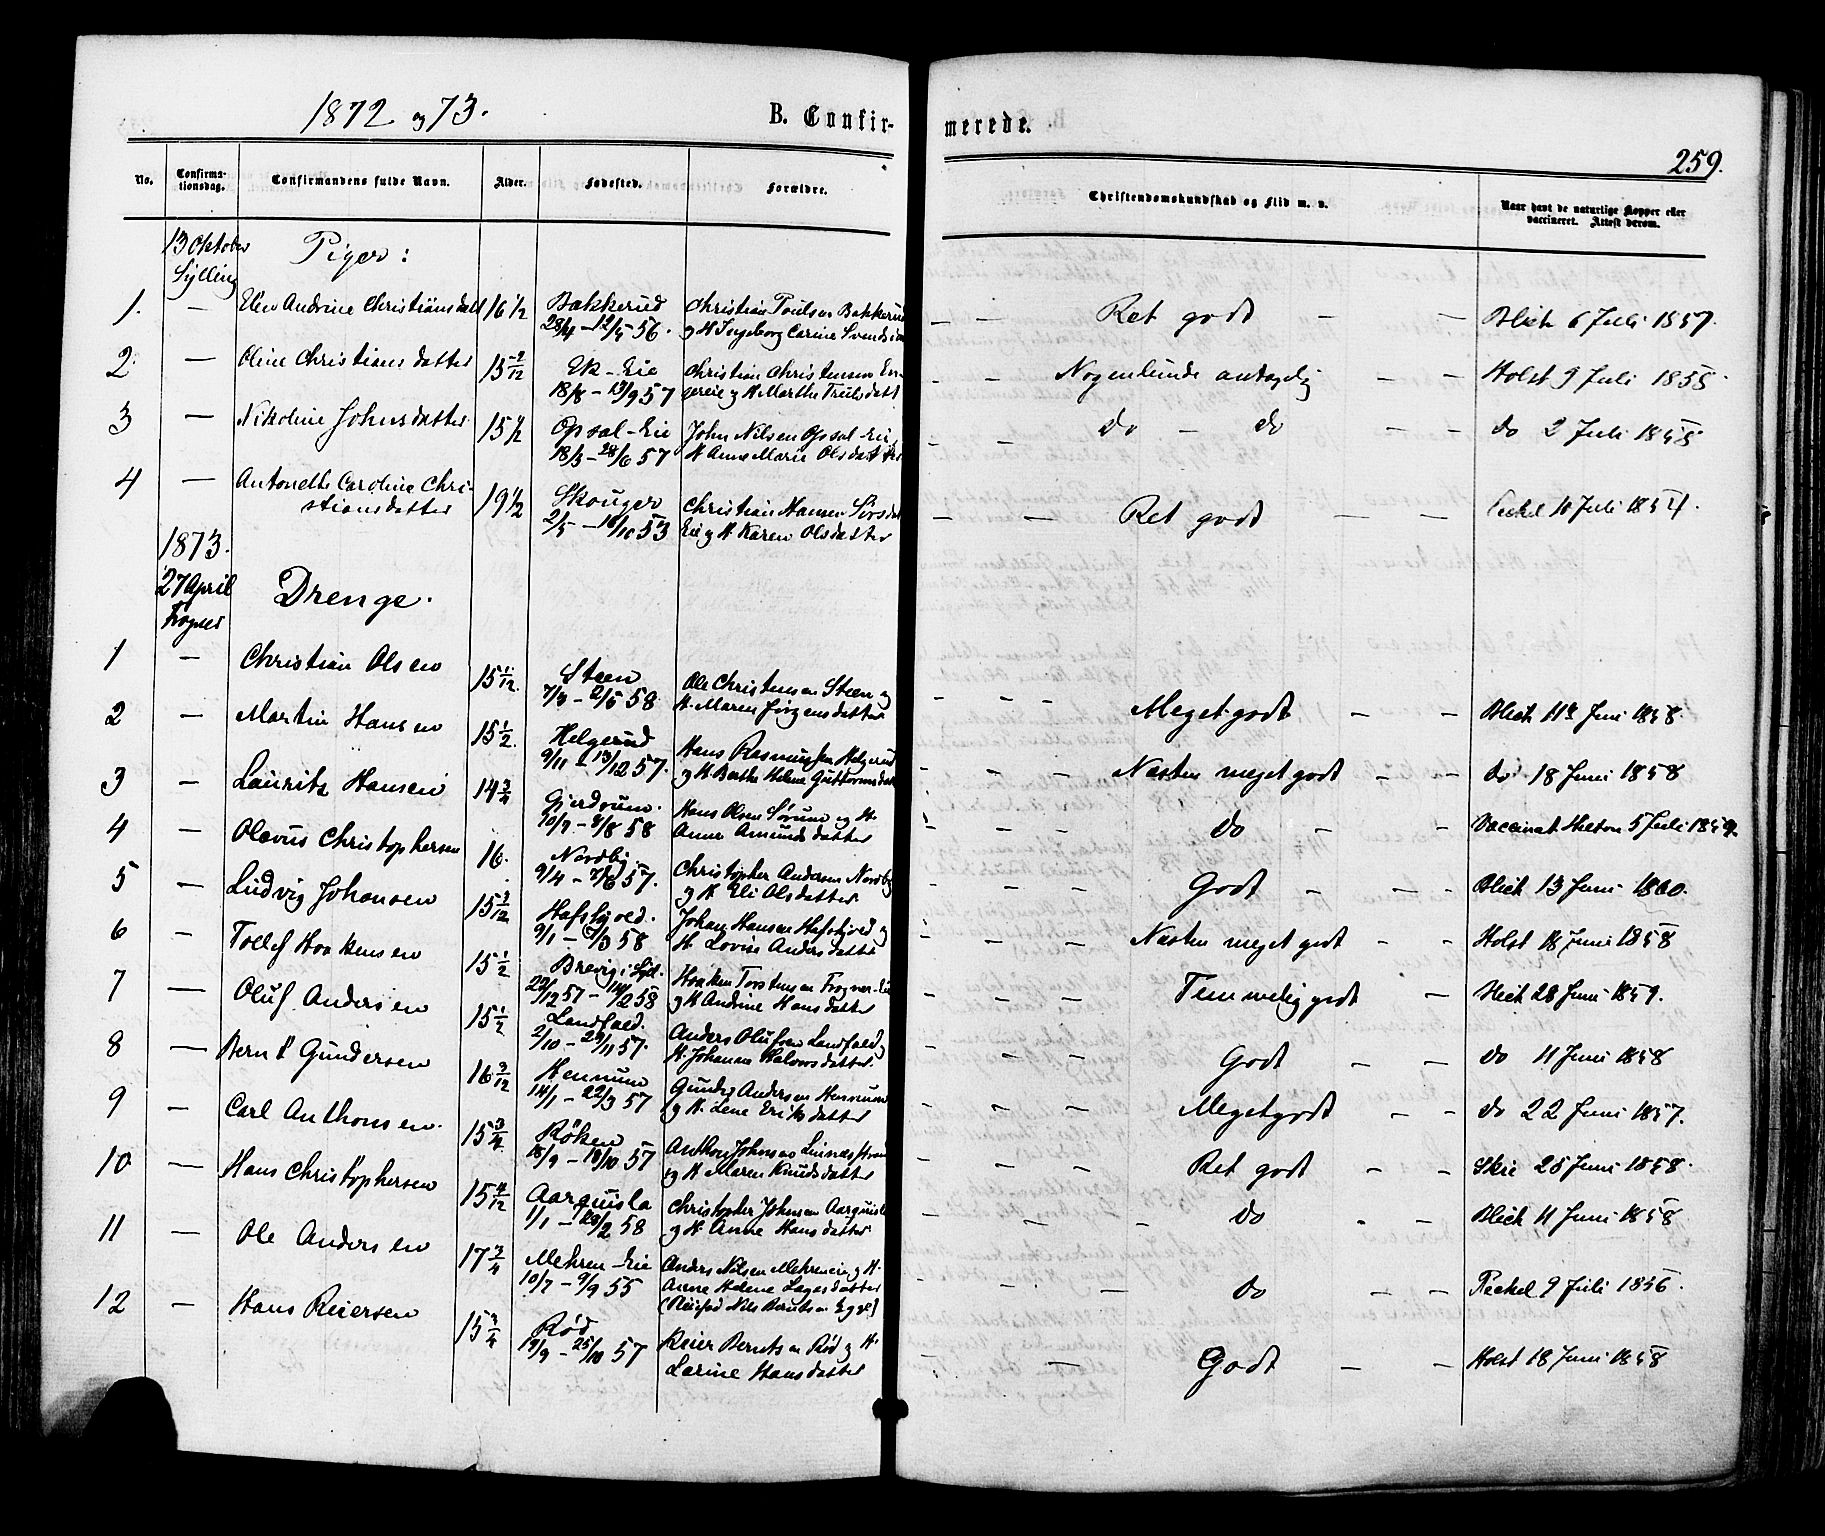 1872 og 73.
B. Confirmerede.
259.
No.
Confirmationsdag.
Confirmandens fulde Navn.
Alder.
Fødested.
Forældre.
Christendomskundskab og Flid m. v.
Naar havt de naturlige Kopper eller vaccineret. Attest derom.
13 Oktober
Sylling
Piger:
1. — Elen Andrine Christiansdatt 16 1/2 Bakkerud Christian Poulsen Bakkerud
28/4 – 12/5 56. og H Ingeborg Carine
— — Ret godt — — Blich 6 Juli 1857.
2. — Oline Christiansdatter 15 2/12 Ek-Eie Christian Christensen
18/8 – 13/9 57 og H Marthe Trulsdatt
— — Nogenlunde antagelig — — Holst 9 Juli 1858.
3 — Nikoline Johnsdatter 15 1/2 Opsal-Eie John Nilsen Opsal-Eie
18/3 – 28/6 57 H Anne Marie Olsdatter
— — do — do — — do 2 Juli 1858
4 — Antonette Caroline Chri-
stiansdatter 19 1/2 Skouger Christian Hansen
2/5 – 16/10 53 Eie og H Karen Olsdatter
— — Ret godt — — 10 Juli 1854.
1873.
27 April
Frogner
Drenge.
1 — Christian Olsen 15 1/12. Steen Ole Christensen Steen og
7/3 – 2/5 58 H. Maren Jörgensdatter
— — Meget godt — — Blich 11te Juni 1858.
2 — Martin Hansen 15 1/2. Helgerud Hans Rasmussen Helgerud
9/11 – 13/12 57. og H Berthe Helene Guttormsdatt
— — Næsten meget godt — — do 18 Juni 1858
3 — Lauritz Hansen 14 3/4 Gjerdrum. Hans Olsen Sørum og H.
10/7 – 8/8 58 Anne Amundsdatter
— — do — — Vaccinat Hilton 5 Juli 1859.
4 — Olavus Christophersen 16. Nordby. Christopher Andersen Nordby
9/4 – 7/6 57. og H Eli Olsdatter
— — Godt — — Blich 13 Juni 1860.
5 — Ludvig Johansen 15 3/12 Hafskjold. Johan Hansen Hafskjold og
9/1 – 7/3 58 H. Lovise Andersdatter
— — Næsten meget godt — — Holst 18 Juni 1858
6 — Tollef Haakensen 15 1/2 Brevig i Syl. Haaken Torstensen Frogner-Eie
22/12 57 – 14/2 58 og H Andrine Hansdatter
— — Temmelig godt — 28 Juni 1859.
7 — Oluf Andersen 15 1/2 Landfald. Anders Olufsen Landfald og
2/10 – 29/11 57. H. Johanne Halvorsdatter.
— — Godt — — do 11 Juni 1858
8 — Bernt Gundersen 16 3/12 Hennum Gunder Andersen Hennum
14/1 – 22/3 57 og H. Lene Eriksdatter
— — Meget godt — — do 22 Juni 1857.
9 — Carl Anthonsen. 15 3/4. Røken Anthon Johnsen
18/9 – 18/10 57 og H Maren Knudsdatter
— — Ret godt — — 25 Juni 1858.
10 — Hans Christophersen 15 4/12 Aarquisla Christopher Johnsen Aarquisla
1/1 – 28/2 58 og H. Anne Hansdatter
— — do — — Blich 11 Juni 1858
11 — Ole Andersen 17 3/4 Mehren-Eie Anders Nilsen Mehreneie og H.
10/7 – 9/9 55 Anne Helene Lagesdatter
(Pleiefad Nils Berntsen Egge)
— — do — — Peckel 9 Juli 1856.
12 — Hans Reiersen 15 3/4 Rød Reier Berntsen Rød og H.
19/9 – 25/10 57 Larine Hansdatter
— Godt — — Holst 18 Juni 1858